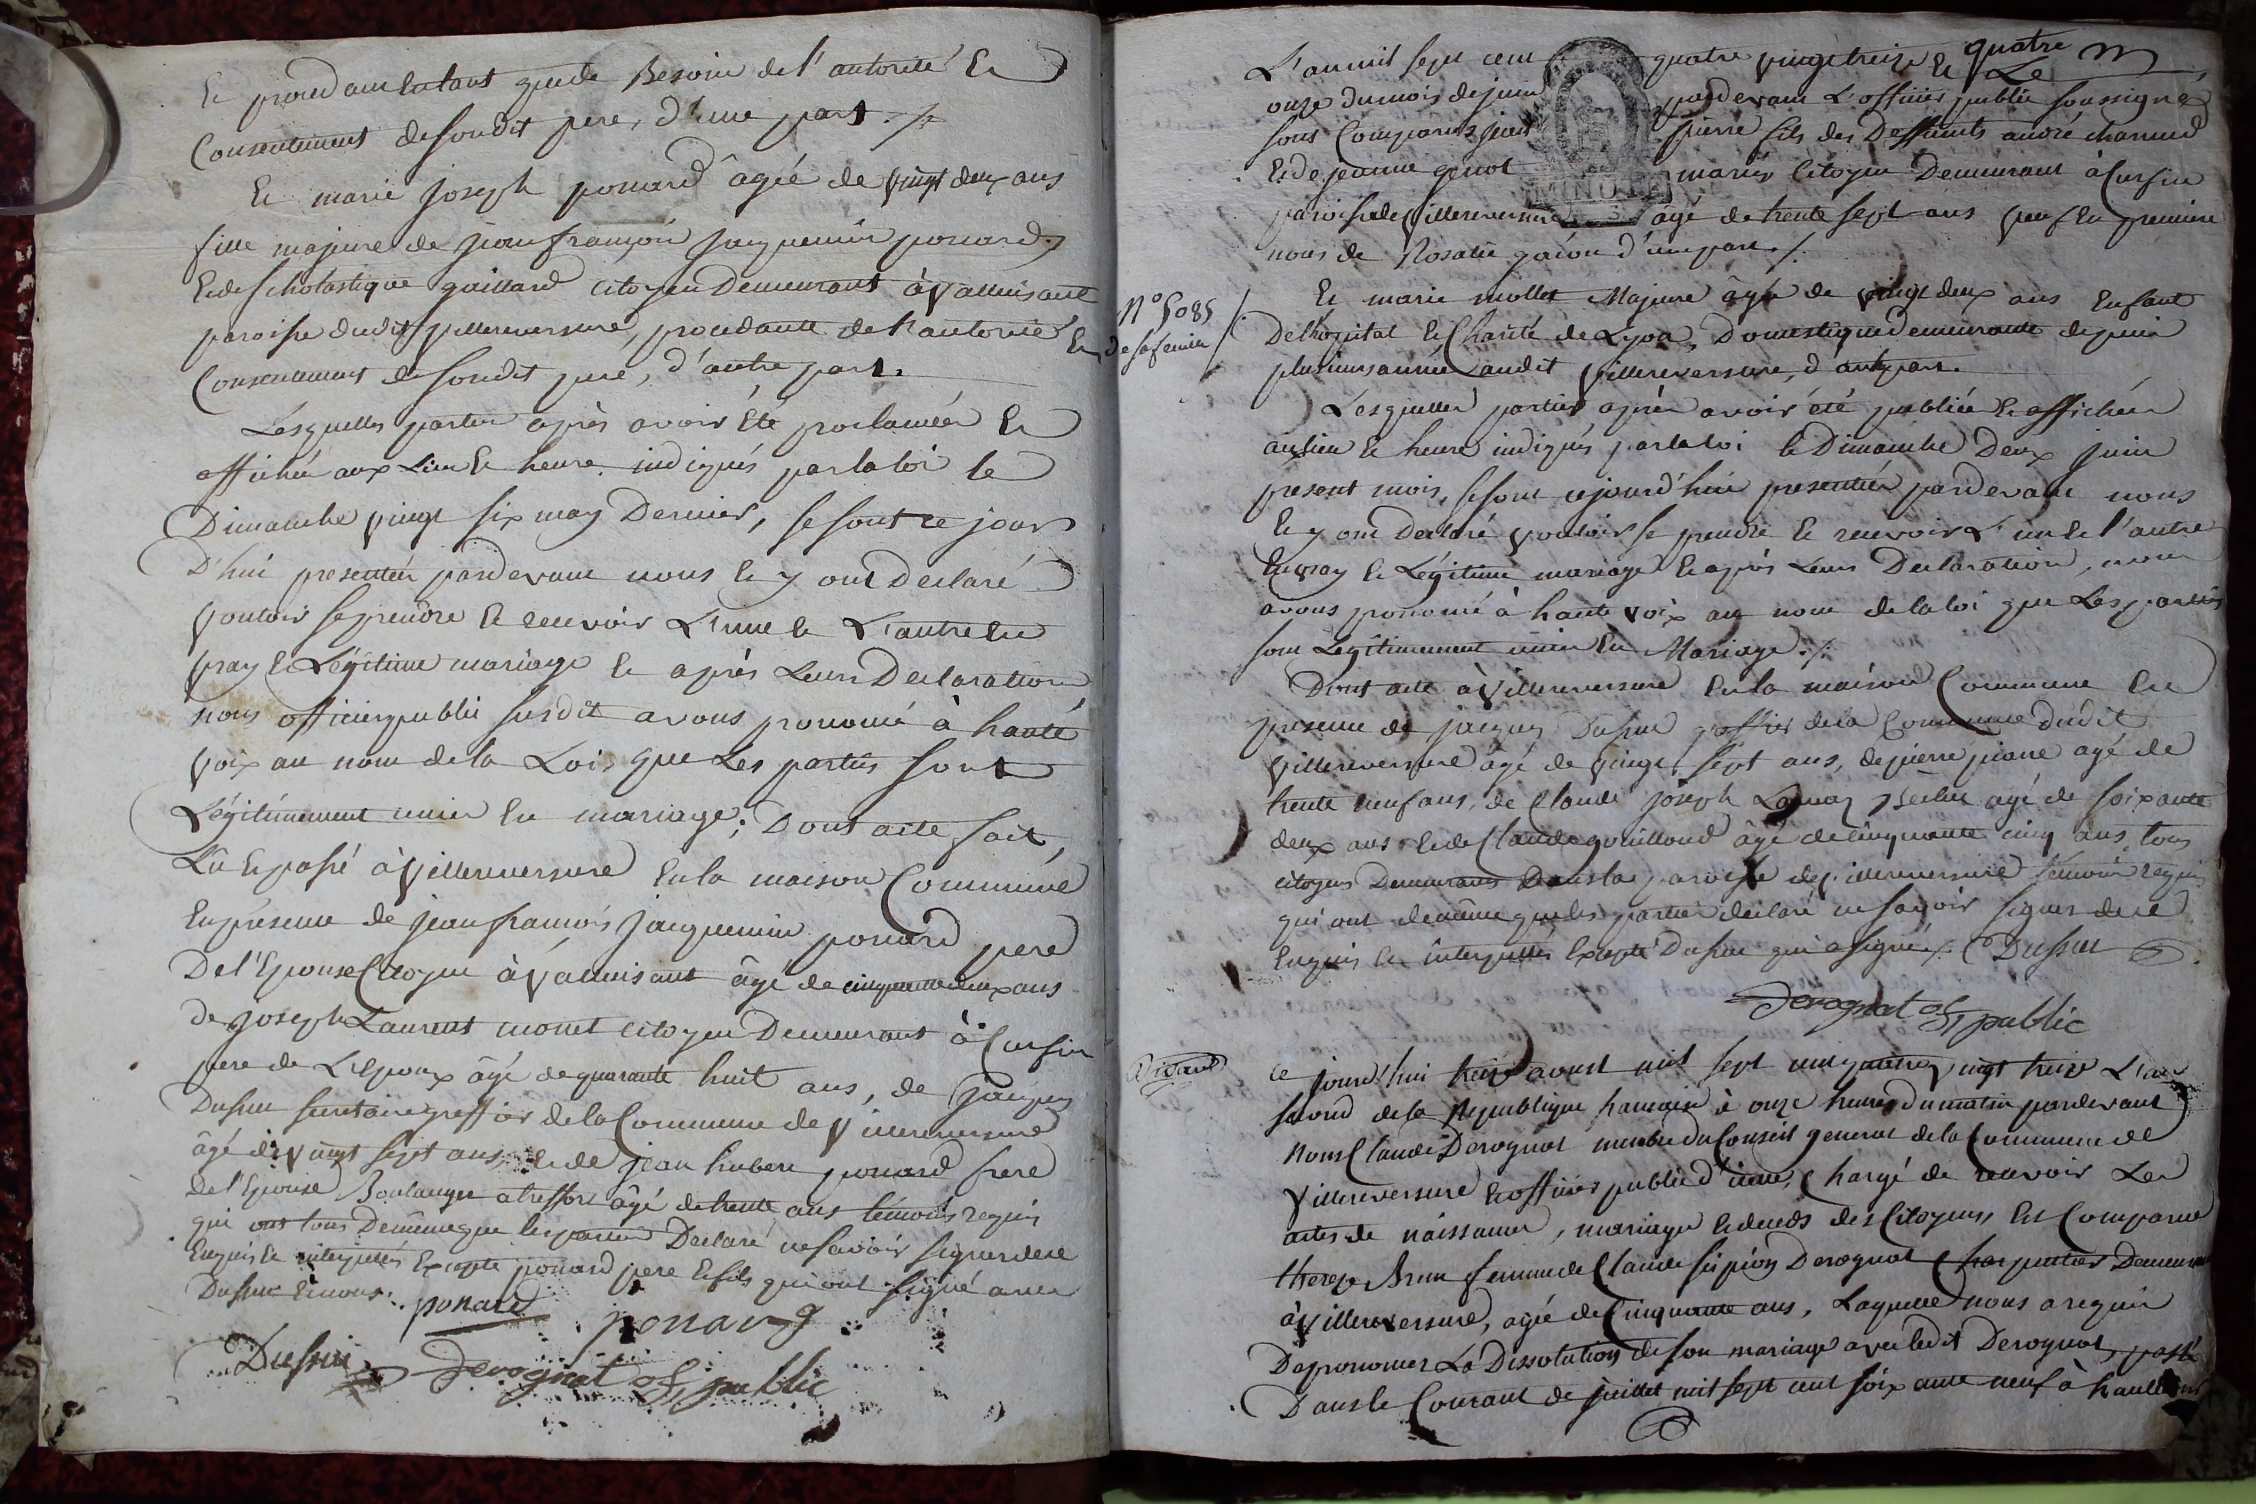 Et procedant entant que de Besoin de l'autorité Et
Consentement de sondit pere, d'une part ./.
Et marie joseph ponard âgée de vingt deux ans
fille majeure de jean françois jacquemin ponard
Et de scholastique gaillard citoyen Demeurant à
paroisse dudit villereversure, procedante de l'autorité Et
Consentement de sondit pere, d'autre part.
Lesquelles parties après avoir été proclamées Et
affichées aux Lieu Et heure indiqués par la loi le
Dimanche vingt six may Dernier, se sont ce jour
D'hui presentées pardevant nous Et y ont declaré
vouloir se prendre Et recevoir L'une Et L'autre En
vray Et Légitime mariage Et après Leurs Declaration
nous officier public susdit avons prononcé à haute
voix au nom de la Lois que Les parties sont
Légitimement unies En mariage; Dont acte fait,
Lû Et passé à villereversure En la maison Commune
En presence de jean francois jacquemin ponard pere
De l'Epouse Citoyen à âgé de cinquante deux ans
de joseph Laurent monet citoyen Demeurant à Cursin
pere de L'Epoux âgé de quarante huit ans, de jacques
Dussuc secretaire greffier de la Commune de villereversure
âgé de vingt sept ans, Et de jean hubert ponard frere
de l'Epouse Boulanger a treffort âgé de trente ans témoins requis
qui ont tous Demême que les parties Declaré ne savoir signer dece
Enquis Et interpellés Excepté ponard pere Et fils qui ont signé avec
Dussuc Et nous. ponard
ponard
Dussuc Derognat of. public
L'an mil sept cent quatre vingt treize Et quatre
Le
onze du mois de juin pardevant L'officier public soussigné
sont Comparus jean pierre fils des Deffunts andré charnud
Et de jeanne genot mariés Citoyen Demeurant à Cursin
paroisse de villereversure âgé de trente sept ans veuf En premiere
noces de Rosalie d'une part ./.
N° 5085
de sa femme
MINUTE
Et marie mollet Majeure âgée de vingt deux ans Enfant
De l'hopital Et Charité de Lyon, Domestique Demeurante depuis
plusieurs années audit villereversure, d'autre part.
Lesquelles parties après avoir été publiées Et affichées
au lieu Et heure indiqués par la loi le Dimanche Deux juin
present mois, se sont cejourd'hui presentées pardevant nous
Et y ont Declaré vouloir se prendre Et recevoir L'un Et l'autre
En vray Et Légitime mariage Et après Leurs Declaration, nous
avons prononcé à haute voix au nom de la loi que Les parties
sont Légitimement unies En Mariage ./.
Dont acte à Villereversure En la maison Commune En
presence de jacques Dussuc greffier de la Commune dudit
villereversure âgé de vingt sept ans, de pierre âgé de
trente neuf ans, de Claude joseph âgé de soixante
deux ans Et de Claude gouilloud âgé de cinquante cinq ans, tous
citoyens Demeurants Dans la paroisse de villereversure témoins requis
qui ont demême que les parties declaré ne savoir signer dece
Enquis Et interpellés Excepté Dussuc qui a signé ./. Dussuc
Derognat of. public
Divorce
Ce jourd'hui treize avoust mil sept cent quatre vingt treize L'an
second de la Republique francaise à onze heures du matin pardevant
Nous Claude Derognat membre du Conseil general de la Commune de
Villereversure Et officier public d'icelle, Chargé de recevoir Les
actes de naissances, mariages Et deceds des Citoyens, Est Comparue
thereze Brun femme de Claude Derognat Charpentier Demeurant
à villereversure, agée de Cinquante ans, Laquelle nous a requis
De prononcer La Dissolution de son mariage avec ledit Derognat, passé
Dans le Courant de juillet mil sept cent soixante neuf à